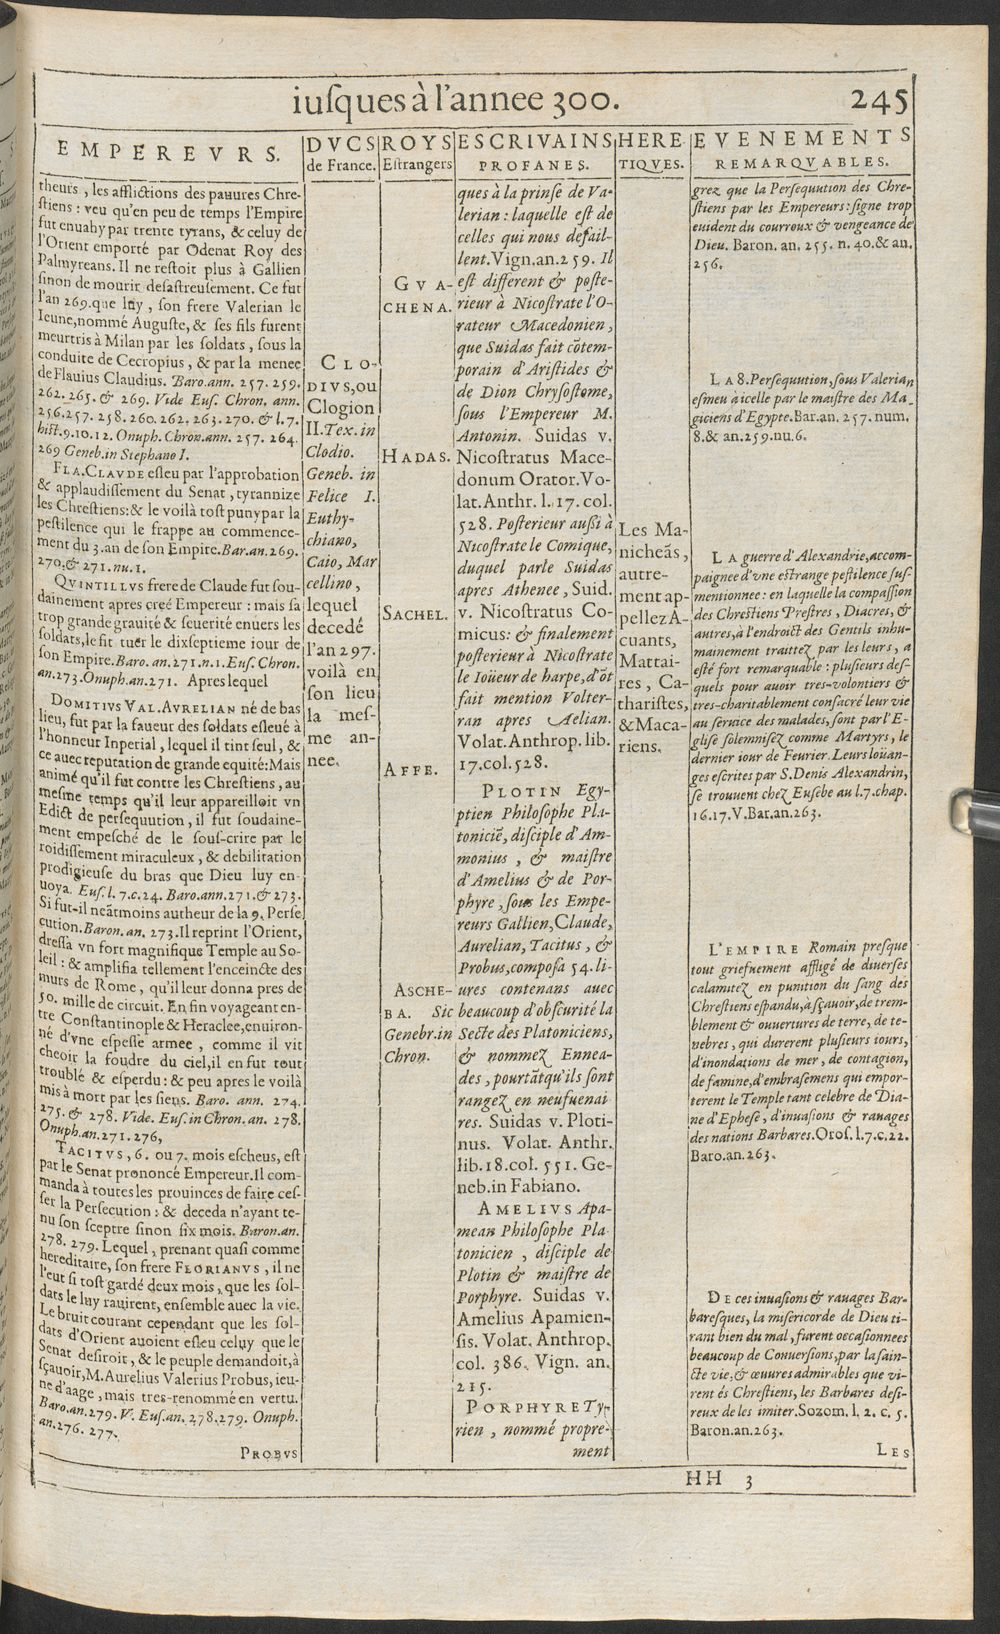 iuſques à l'annee 300.
245
EMPEREVRS.
theurs, les afflictions des pauures Chre-
ſtiens : veu qu'en peu de temps l'Empire
fut enuahy par trente tyrans, & celuy de
l'Orient emporté par Odenat Roy des
Palmyreans. Il ne reſtoit plus à Gallien
ſinon de mourir deſaſtreuſement. Ce fut
l'an 269. que luy, ſon frere Valerian le
Ieune, nommé Auguſte, & ſes fils furent
meurtris à Milan par les ſoldats, ſous la
conduite de Cecropius, & par la menee
de Flauius Claudius. Baro. ann. 257. 259.
262. 265. & 269. Vide Euſ. Chron. ann.
256. 257. 258. 260. 262. 263. 270. & l. 7.
hiſt. 9. 10. 12. Onuph. Chron. ann. 257. 264.
269 Geneb. in Stephano I.
FLA. CLAVDE eſleu par l'approbation
& applaudiſſement du Senat, tyrannize
les Chreſtiens: & le voilà toſt puny par la
peſtilence qui le frappe au commence-
ment du 3. an de ſon Empire. Bar. an. 269.
270. & 271. nu. 1.
QVINTILLVS frere de Claude fut ſou-
dainement apres creé Empereur : mais ſa
trop grande grauité & ſeuerité enuers les
ſoldats, le fit tuër le dixſeptieme iour de
ſon Empire. Baro. an. 271. n. 1. Euſ. Chron.
an. 273. Onuph. an. 271. Apres lequel
DOMITIVS VAL. AVRELIAN né de bas
lieu, fut par la faueur des ſoldats eſleué à
l'honneur Inperial, lequel il tint ſeul, &
ce auec reputation de grande equité: Mais
animé qu'il fut contre les Chreſtiens, au
meſme temps qu'il leur appareilloit vn
Edict de perſequution, il fut ſoudaine-
ment empeſché de le ſous-crire par le
roidiſſement miraculeux, & debilitation
prodigieuſe du bras que Dieu luy en-
uoya. Euſ. l. 7. c. 24. Baro. ann. 271. & 273.
Si fut-il neãtmoins autheur de la 9. Perſe
cution. Baron. an. 273. Il reprint l'Orient,
dreſſa vn fort magnifique Temple au So-
leil : & amplifia tellement l'enceincte des
murs de Rome, qu'il leur donna pres de
50. mille de circuit. En fin voyageant en-
tre Conſtantinople & Heraclee, enuiron-
né d'vne eſpeſſe armee, comme il vit
cheoir la foudre du ciel, il en fut tout
troublé & eſperdu : & peu apres le voilà
mis à mort par les ſiens. Baro. ann. 274.
275. & 278. Vide. Euſ. in Chron. an. 278.
Onuph. an. 271. 276,
TACITVS, 6. ou 7. mois eſcheus, eſt
par le Senat prononcé Empereur. Il com-
manda à toutes les prouinces de faire ceſ-
ſer la Perſecution : & deceda n'ayant te-
nu ſon ſceptre ſinon ſix mois. Baron. an.
278. 279. Lequel, prenant quaſi comme
hereditaire, ſon frere FLORIANVS, il ne
l'eut ſi toſt gardé deux mois, que les ſol-
dats le luy rauirent, enſemble auec la vie.
Le bruit courant cependant que les ſol-
dats d'Orient auoient eſleu celuy que le
Senat deſiroit, & le peuple demandoit, à
ſçauoir, M. Aurelius Valerius Probus, ieu-
ne d'aage, mais tres-renommé en vertu.
Baro. an. 279. V. Euſ. an. 278. 279. Onuph.
an. 276. 277.
PROBVS
DVCS
de France.
CLO-
DIVS, ou
Clogion
II. Tex. in
Clodio.
Geneb. in
Felice I.
Euthy-
chiano,
Caio, Mar
cellino,
lequel
decedé
l'an 297.
voilà en
ſon lieu
la meſ-
me an-
nee.
ROYS
Eſtrangers
GVA-
CHENA.
HADAS.
SACHEL.
AFFE.
ASCHE-
BA. Sic
Genebr. in
Chron.
ESCRIVAINS
PROFANES.
ques à la prinſe de Va-
lerian : laquelle eſt de
celles qui nous defail-
lent. Vign. an. 259. Il
eſt different & poſte-
rieur à Nicoſtrate l'O-
rateur Macedonien,
que Suidas fait cõtem-
porain d'Ariſtides &
de Dion Chryſoſtome,
ſous l'Empereur M.
Antonin. Suidas v.
Nicoſtratus Mace-
donum Orator. Vo-
lat. Anthr. l. 17. col.
528. Poſterieur auſſi à
Nicoſtrate le Comique,
duquel parle Suidas
apres Athenee, Suid.
v. Nicoſtratus Co-
micus: & finalement
poſterieur à Nicoſtrate
le Ioüeur de harpe, d'õt
fait mention Volter-
ran apres Aelian.
Volat. Anthrop. lib.
17. col. 528.
PLOTIN Egy-
ptien Philoſophe Pla-
tonicië, diſciple d'Am-
monius, & maiſtre
d'Amelius & de Por-
phyre, ſous les Empe-
reurs Gallien, Claude,
Aurelian, Tacitus, &
Probus, compoſa 54. li-
ures contenans auec
beaucoup d'obſcurité la
Secte des Platoniciens,
& nommez Ennea-
des, pourtãt qu'ils ſont
rangez en neuf uenai
res. Suidas v. Ploti-
nus. Volat. Anthr.
lib. 18. col. 551. Ge-
neb. in Fabiano.
AMELIVS Apa-
mean Philoſophe Pla
tonicien, diſciple de
Plotin & maiſtre de
Porphyre. Suidas v.
Amelius Apamien-
ſis. Volat. Anthrop.
col. 386. Vign. an.
215.
PORPHYRE Ty-
rien, nommé propre-
ment
HERE
TIQVES.
Les Ma-
nicheãs,
autre-
ment ap-
pellez A-
cuants,
Mattai-
res, Ca-
thariſtes,
& Maca-
riens.
EVENEMENTS
REMARQVABLES.
grez que la Perſequution des Chre-
ſtiens par les Empereurs: ſigne trop
euident du courroux & vengeance de
Dieu. Baron. an. 255. n. 40. & an.
256.
LA 8. Perſequution, ſous Valerian
eſmeu à icelle par le maiſtre des Ma-
giciens d'Egypte. Bar. an. 257. num.
8. & an. 259. nu. 6.
LA guerre d'Alexandrie, accom-
paignee d'vne eſtrange peſtilence ſuſ-
mentionnee : en laquelle la compaſſion
des Chreſtiens Preſtres, Diacres, &
autres, à l'endroict des Gentils inhu-
mainement traittez par les leurs, a
eſté fort remarquable : pluſieurs deſ-
quels pour auoir tres-volontiers &
tres-charitablement conſacré leur vie
au ſeruice des malades, ſont par l'E-
gliſe ſolemniſez comme Martyrs, le
dernier iour de Feurier. Leurs loüan-
ges eſcrites par S. Denis Alexandrin,
ſe trouuent chez Euſebe au l. 7. chap.
16. 17. V. Bar. an. 263.
L'EMPIRE Romain preſque
tout griefuement affligé de diuerſes
calamitez en punition du ſang des
Chreſtiens eſpandu, à ſçauoir, de trem-
blement & ouuertures de terre, de te-
nebres, qui durerent pluſieurs iours,
d'inondations de mer, de contagion,
de famine, d'embraſemens qui empor-
terent le Temple tant celebre de Dia-
ne d'Epheſe, d'inuaſions & rauages
des nations Barbares. Oroſ. l. 7. c. 22.
Baro. an. 263.
DE ces inuaſions & rauages Bar-
bareſques, la miſericorde de Dieu ti-
rant bien du mal, furent occaſionnees
beaucoup de Conuerſions, par la ſain-
cte vie, & œuures admirables que vi-
rent és Chreſtiens, les Barbares deſi-
reux de les imiter. Sozom. l. 2. c. 5.
Baron. an. 263.
LES
HH 3